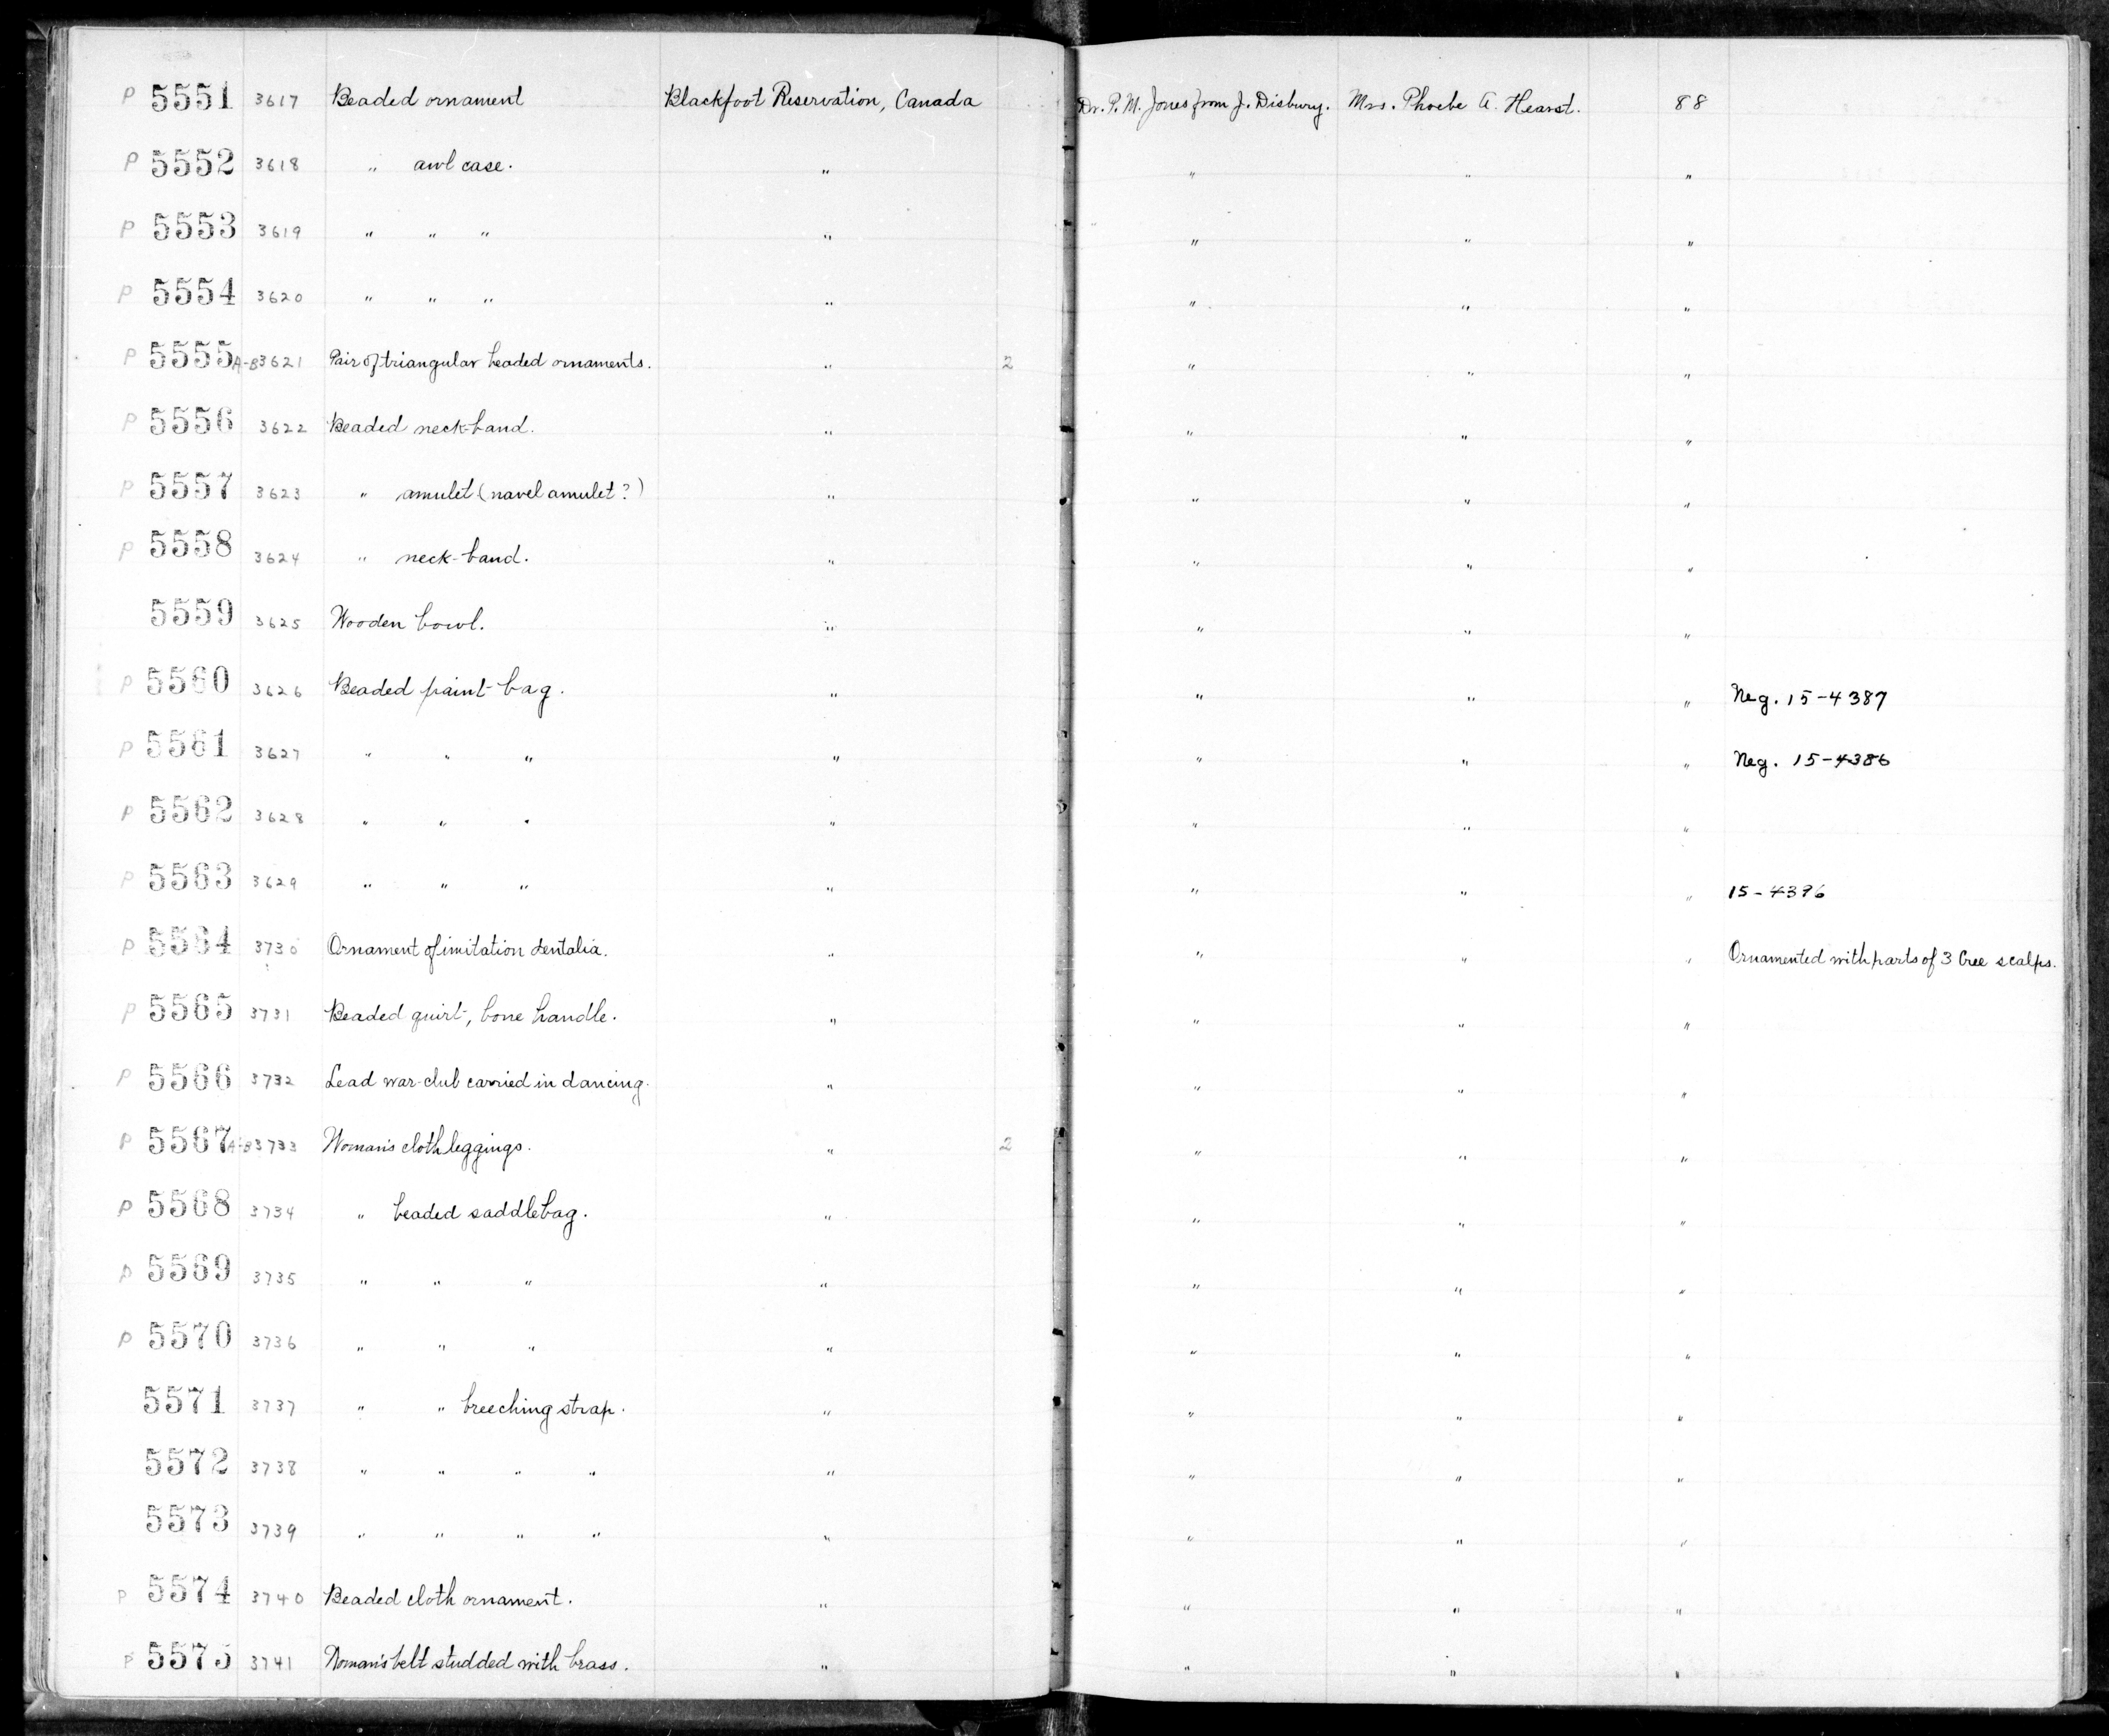 P 5551 3617 Beaded ornament Blackfoot Reservation, Canada Dr. P. M. Jones from J. Disbury. Mrs. Phoebe A. Hearst. 88
P 5552 3618 " awl case. " " " "
P 5553 3619 " " " " " " "
P 5554 3620 " " " " " " "
P 5555 A-B 3621 Pair of triangular beaded ornaments. " 2 " " "
P 5556 3622 Beaded neck-band. " " " "
P 5557 3623 " amulet (navel amulet?) " " " "
P 5558 3624 " neck-band. " " " "
5559 3625 Wooden bowl. " " " "
P 5560 3626 Beaded paint-bag. " " " " Neg. 15-4387
P 5561 3627 " " " " " " " Neg. 15-4386
P 5562 3628 " " " " " " "
P 5563 3629 " " " " " " " 15-4396
P 5564 3730 Ornament of imitation dentalia. " " " " Ornamented with parts of 3 Cree scalps.
P 5565 3731 Beaded quirt, bone handle. " " " "
P 5566 3732 Lead war-club carried in dancing. " " " "
P 5567 A-B 3733 Woman's cloth leggings. " 2 " " "
P 5568 3734 " beaded saddlebag. " " " "
P 5569 3735 " " " " " " "
P 5570 3736 " " " " " " "
5571 3737 " " breeching strap. " " " "
5572 3738 " " " " " " " "
5573 3739 " " " " " " " "
P 5574 3740 Beaded cloth ornament. " " " "
P 5575 3741 Woman's belt studded with brass. " " " "